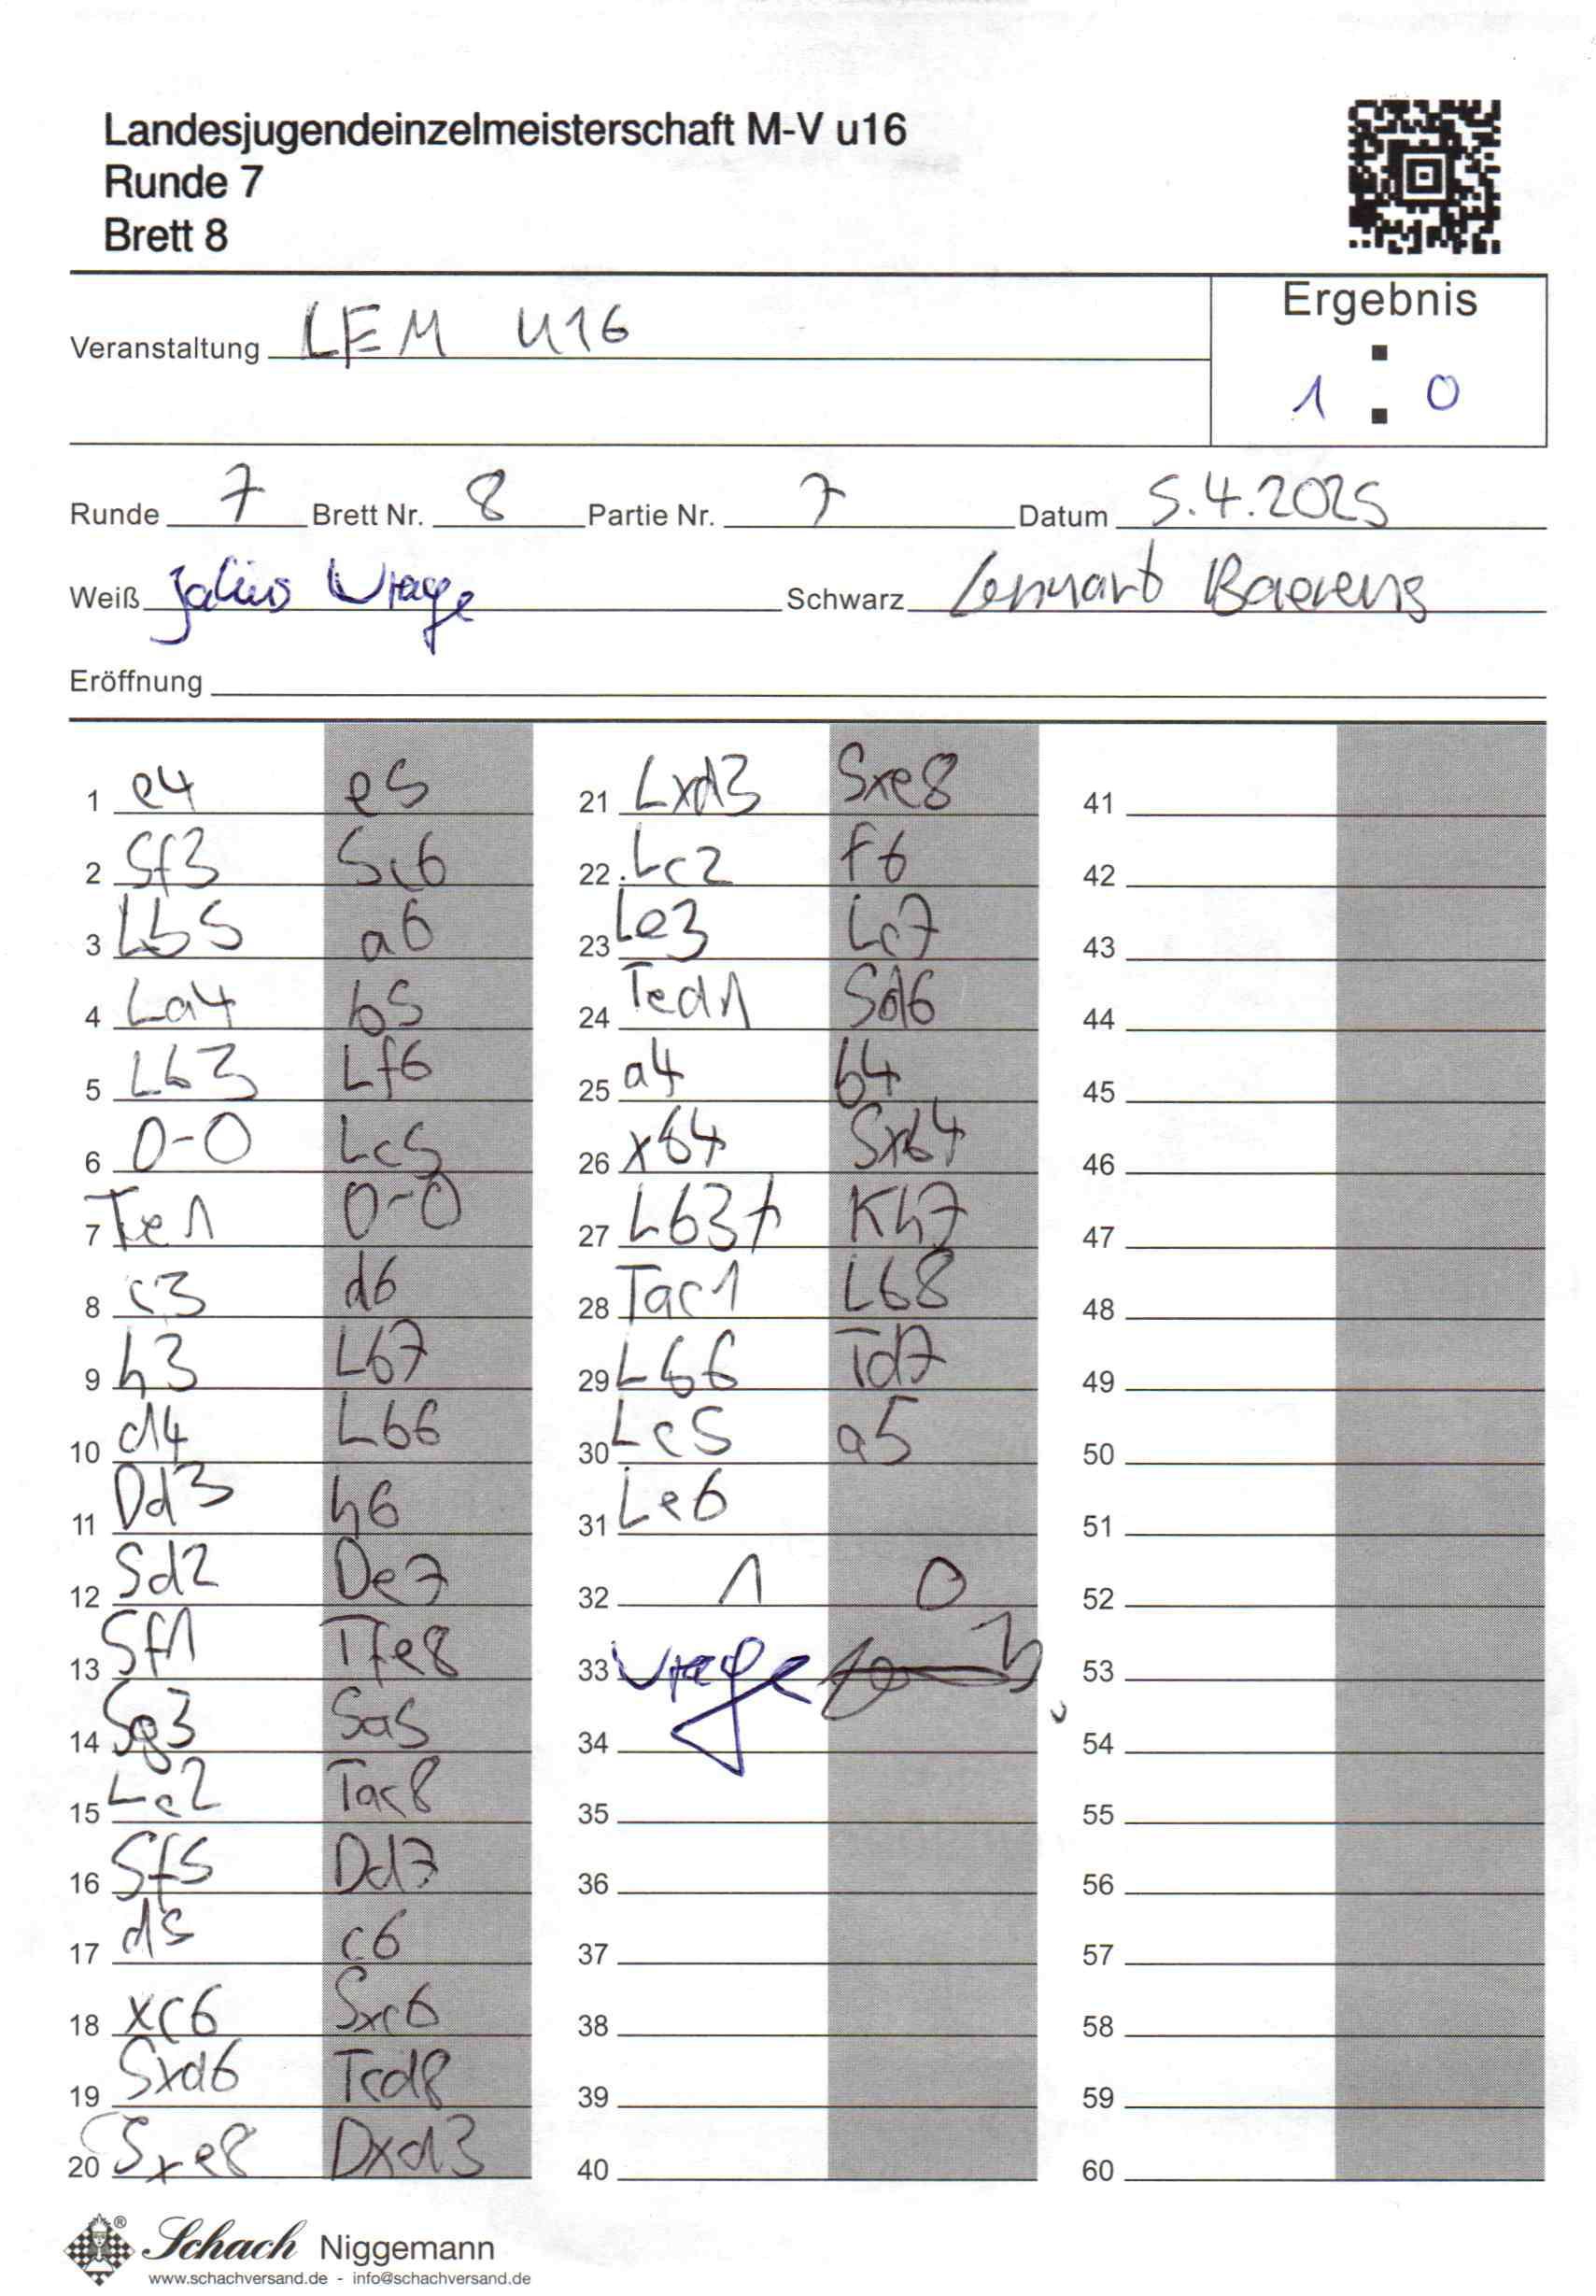 Landesjugendeinzelmeisterschaft M-V u16
Runde 7
Brett 8
Ergebnis
Veranstaltung LEM U16
1 : 0
Runde 7 Brett Nr. 8 Partie Nr. 7 Datum 5.4.2025
Weiß Julius Schwarz Lennart
Eröffnung
1 e4 e5 21 Lxd3 Sxe8 41
2 Sf3 Sc6 22 Lc2 f6 42
3 Lb5 a6 23 Le3 Lc7 43
4 La4 b5 24 Ted1 Sd6 44
5 Lb3 Lf6 25 a4 b4 45
6 0-0 Lc5 26 xb4 Sxb4 46
7 Te1 0-0 27 Lb3+ Kh7 47
8 c3 d6 28 Tac1 Lb8 48
9 h3 Lb7 29 Lb6 Td7 49
10 d4 Lb6 30 Lc5 a5 50
11 Dd3 h6 31 Le6 51
12 Sd2 De7 32 1 0 52
13 Sf1 Tfe8 33 53
14 Sg3 Sa5 34 54
15 Lc2 Tac8 35 55
16 Sf5 Dd7 36 56
17 d5 c6 37 57
18 xc6 Sxc6 38 58
19 Sxd6 Tcd8 39 59
20 Sxe8 Dxd3 40 60
Schach Niggemann
www.schachversand.de - info@schachversand.de